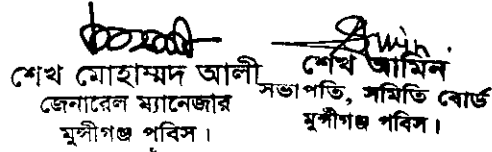 শেখ মোহাম্মদ আলী
জেনারেল ম্যানেজার
মুন্সীগঞ্জ পবিস।
শেখ আমিন
সভাপতি, সমিতি বোর্ড
মুন্সীগঞ্জ পবিস।